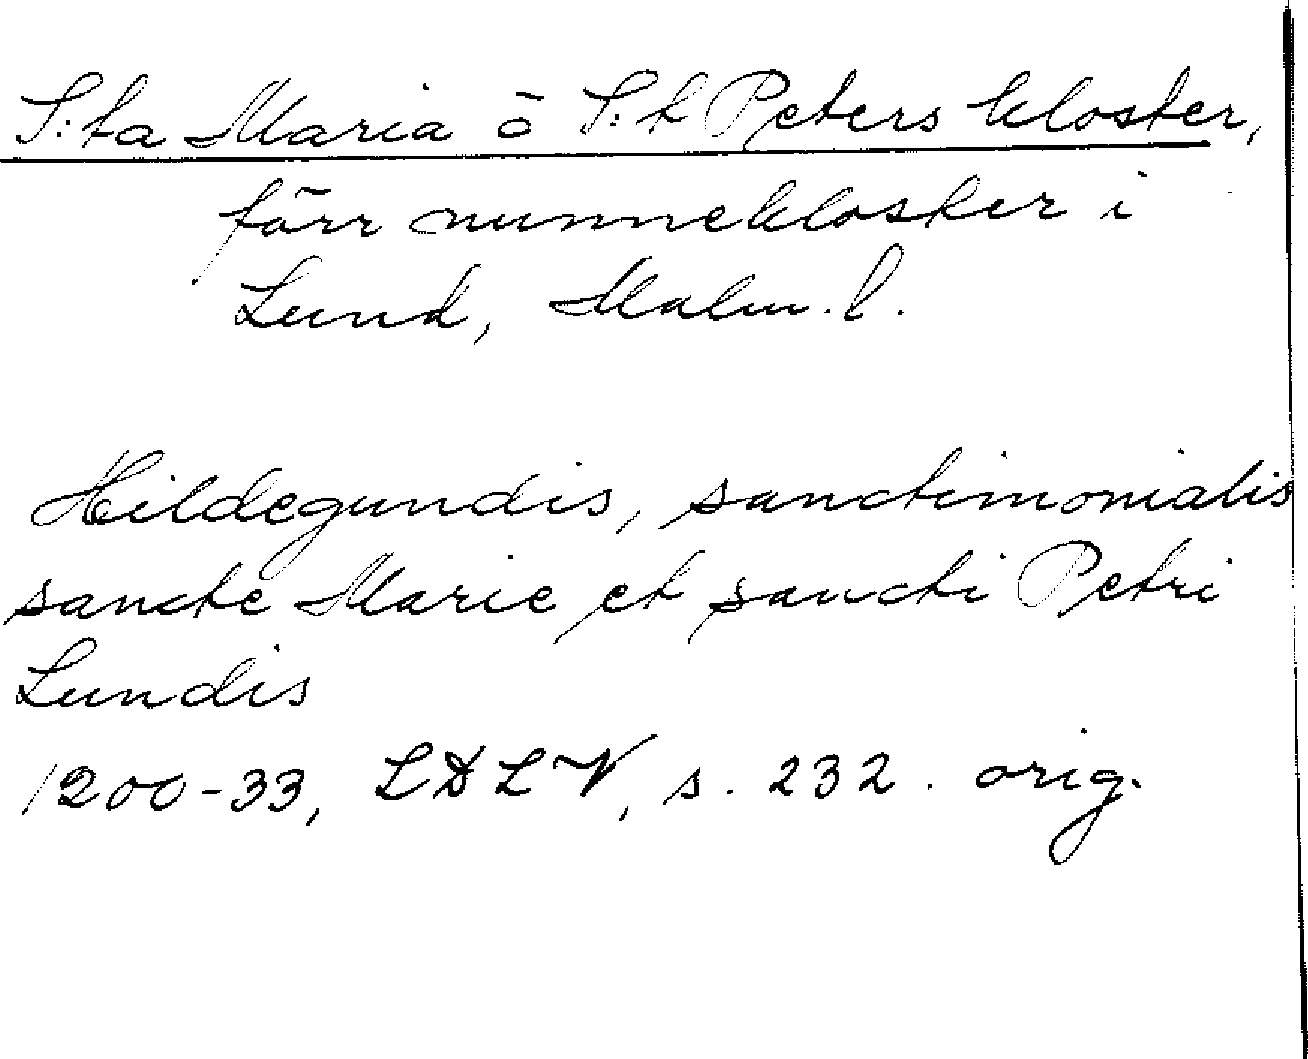 S:ta Maria o S:t Peters kloster,
förr nunnekloster i
Lund, Malm. l.
Hildegundis, sanctimonialis
sancte Marie et sancti Petri
Lundis
1200-33, LDLV, s. 232. orig.